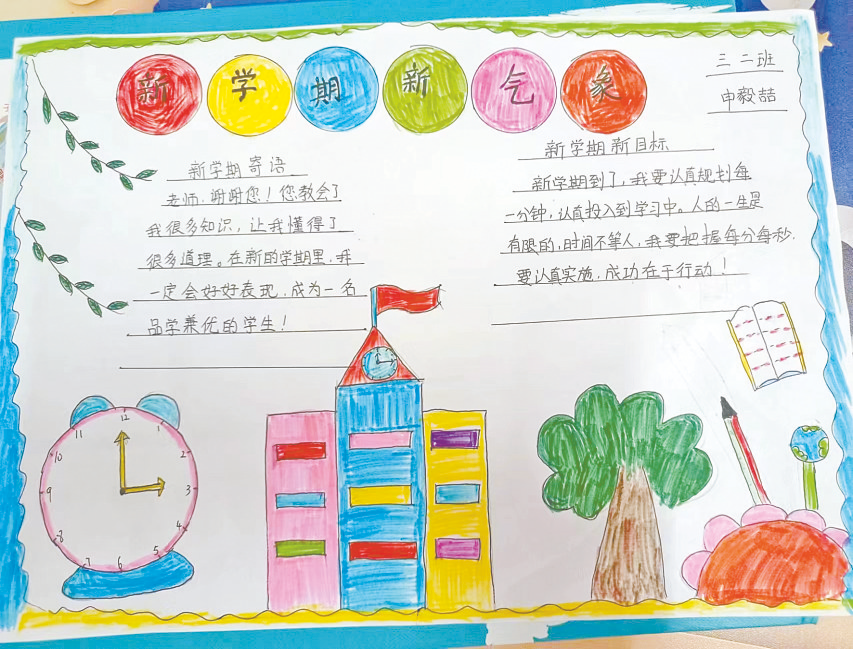 新学期新气象
三 二班
申毅喆
新学期寄语
老师,谢谢您!您教会了
我很多知识,让我懂得了
很多道理。在新的学期里,我
一定会好好表现,成为一名
品学兼优的学生!
新学期新目标
新学期到了,我要认真规划每
一分钟,认真投入到学习中。人的一生是
有限的,时间不等人,我要把握每分每秒.
要认真实施,成功在于行动!
12
11 1
10 2
9 3
8 4
7 6 5